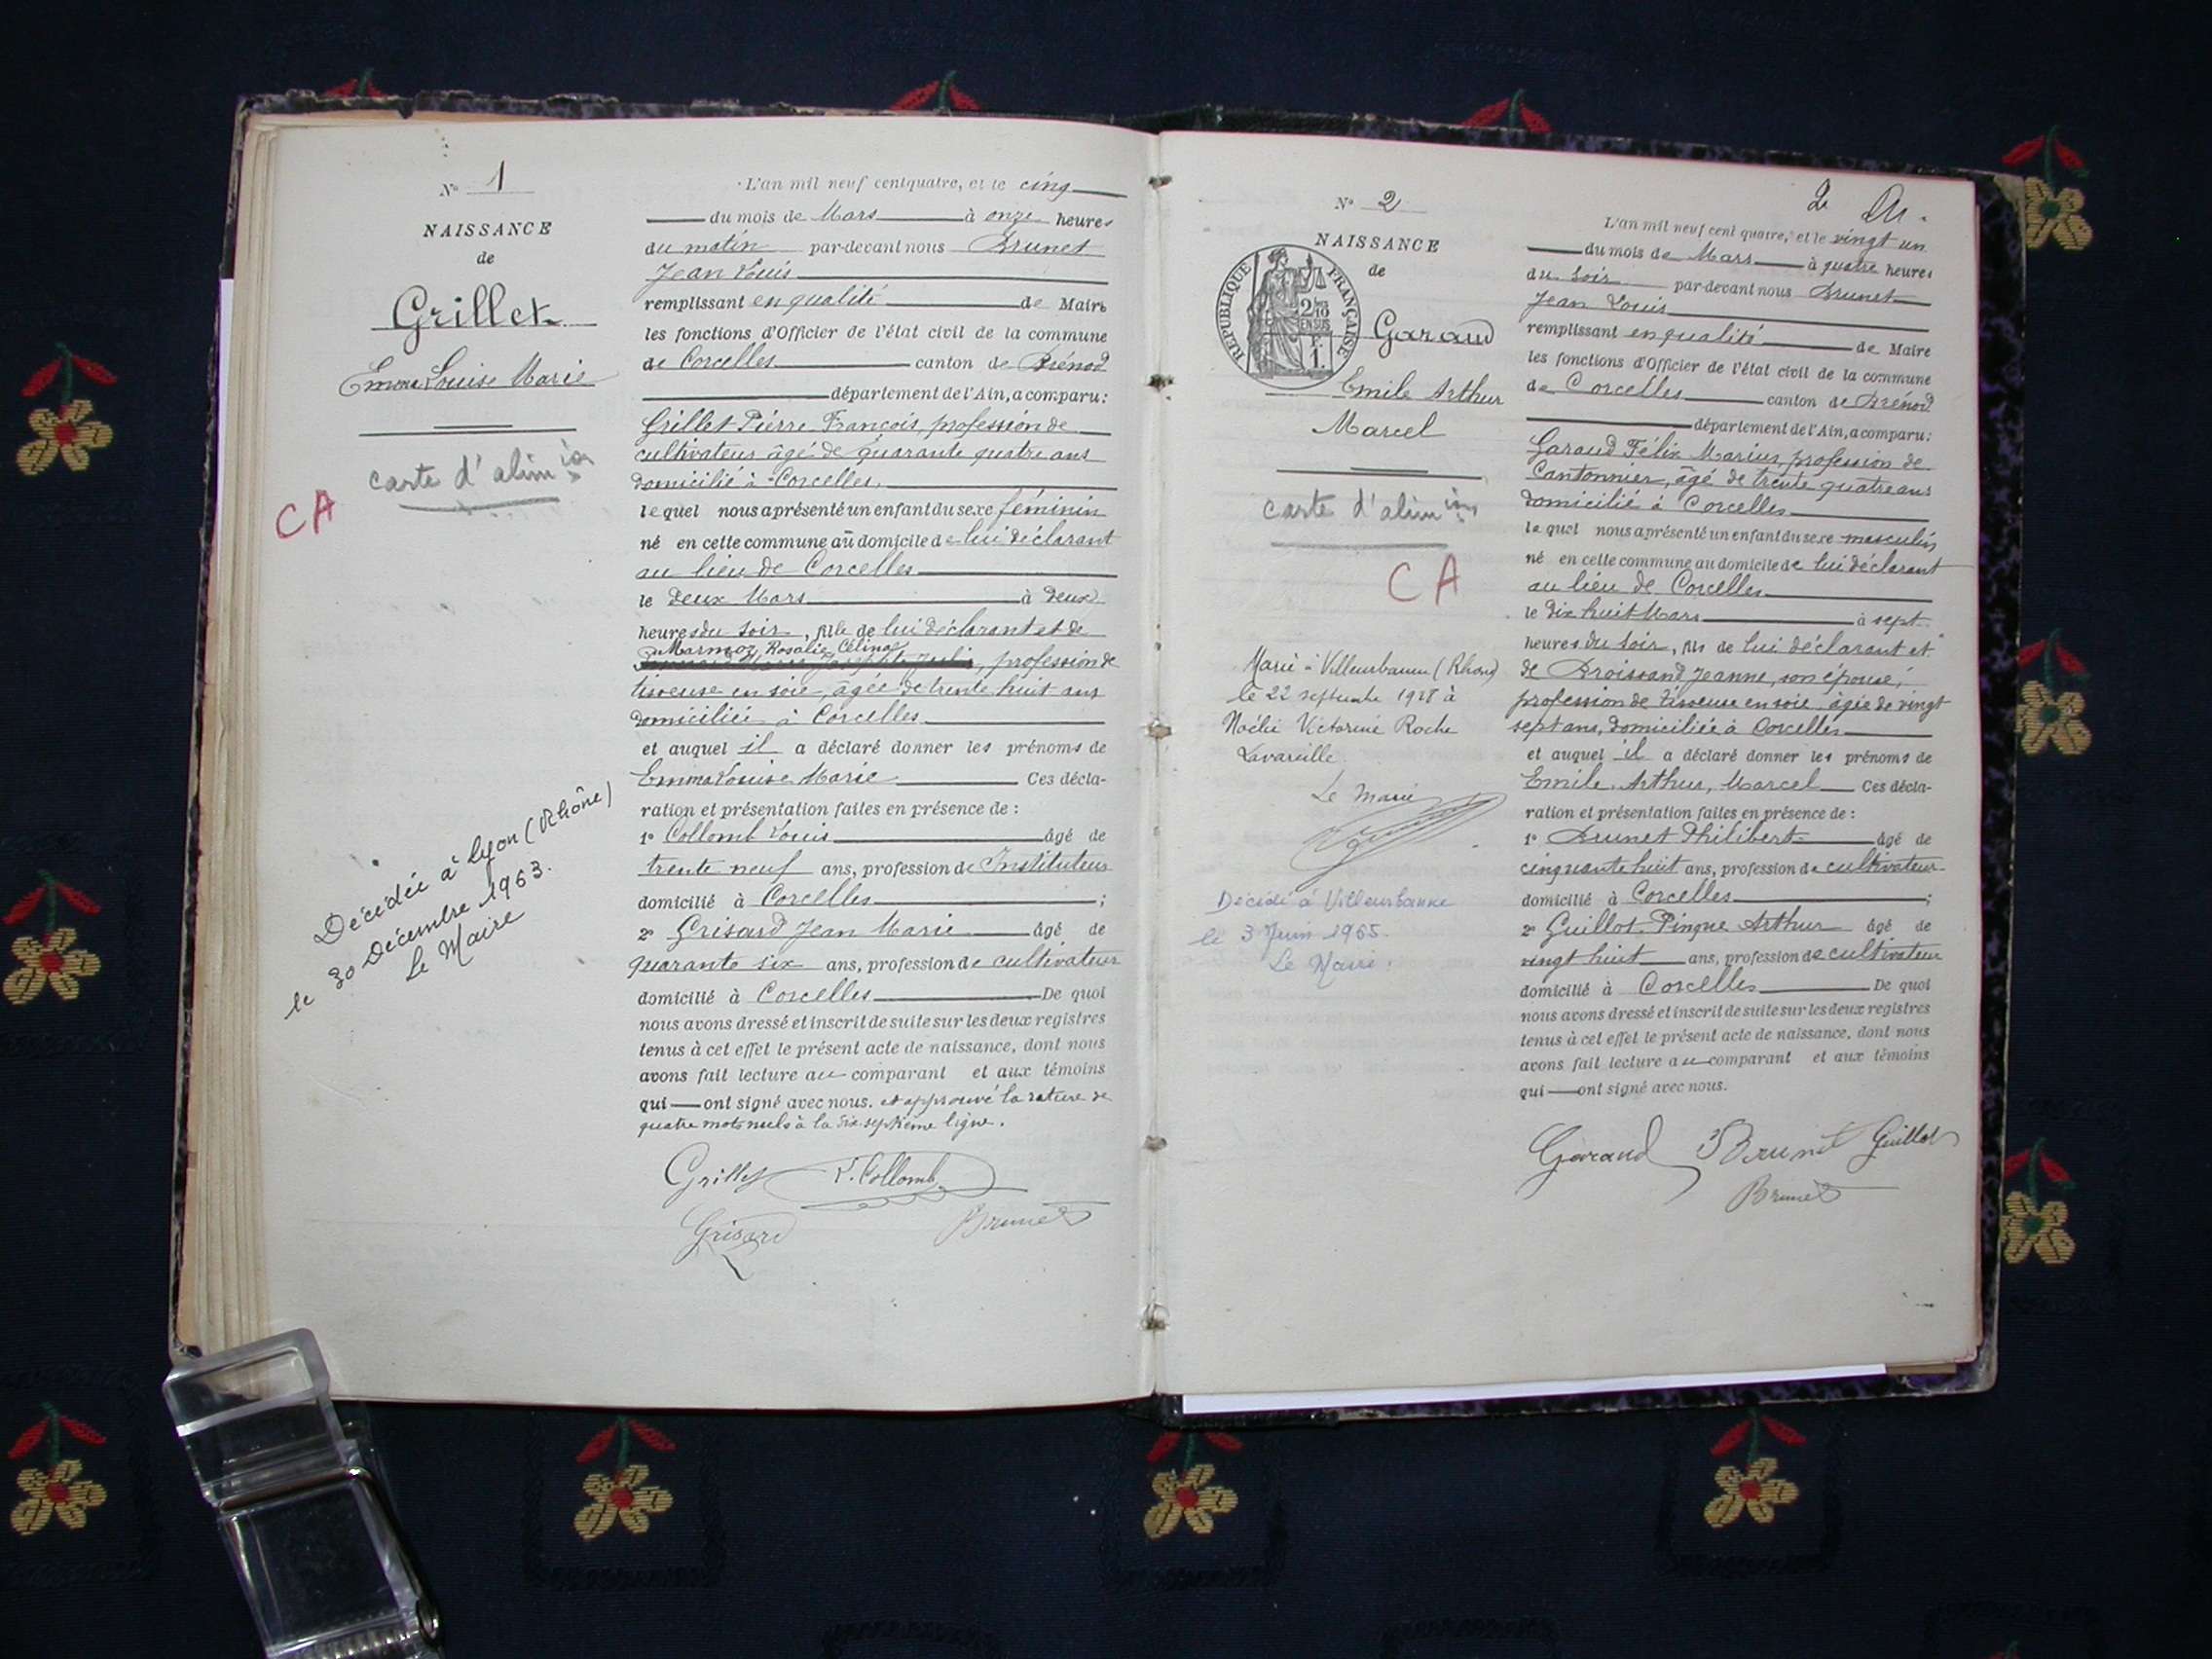 N° 1
NAISSANCE
de
Grillet
Emma Louise Marie
carte d'alim
CA
Décédée à Lyon (Rhône)
le 30 Décembre 1963.
Le Maire
L'an mil neuf cent quatre, et le cinq
du mois de Mars à onze heures
du matin par-devant nous Brunet
Jean Louis
remplissant en qualité de Maire
les fonctions d'Officier de l'état civil de la commune
de Corcelles canton de Brénod
département de l'Ain, a comparu:
Grillet Pierre François, profession de
cultivateur âgé de quarante quatre ans
domicilié à Corcelles,
lequel nous a présenté un enfant du sexe féminin
né en cette commune au domicile de lui déclarant
au lieu de Corcelles
le deux Mars à deux
heures du soir, fille de lui déclarant et de
Marmoz Rosalie Célina
, profession de
tisseuse en soie, âgée de trente huit ans
domiciliée à Corcelles
et auquel il a déclaré donner les prénoms de
Emma Louise Marie Ces décla-
ration et présentation faites en présence de :
1° Collomb Louis âgé de
trente neuf ans, profession de Instituteur
domicilié à Corcelles ;
2° Grisard Jean Marie âgé de
quarante six ans, profession de cultivateur
domicilié à Corcelles De quoi
nous avons dressé et inscrit de suite sur les deux registres
tenus à cet effet le présent acte de naissance, dont nous
avons fait lecture au comparant et aux témoins
qui ont signé avec nous. et approuvé la rature de
quatre mots nuls à la dix septième ligne.
Grillet L. Collomb
Grisard Brunet
2
N° 2
NAISSANCE
de
RÉPUBLIQUE FRANÇAISE
2/10
EN SUS
1 F.
Garaud
Emile Arthur
Marcel
carte d'alim
CA
Marié à Villeurbanne (Rhône)
le 22 septembre 1928 à
Noélie Victorine Roche
Lavareille
Le Maire
Décédé à Villeurbanne
le 3 Juin 1965.
Le Maire.
L'an mil neuf cent quatre, et le vingt un
du mois de Mars à quatre heures
du soir par-devant nous Brunet
Jean Louis
remplissant en qualité de Maire
les fonctions d'Officier de l'état civil de la commune
de Corcelles canton de Brénod
département de l'Ain, a comparu:
Garaud Félix Marius profession de
Cantonnier, âgé de trente quatre ans
domicilié à Corcelles
lequel nous a présenté un enfant du sexe masculin
né en cette commune au domicile de lui déclarant
au lieu de Corcelles
le dix huit Mars à sept
heures du soir, fils de lui déclarant et
de Broissand Jeanne, son épouse,
profession de tisseuse en soie âgée de vingt
sept ans, domiciliée à Corcelles
et auquel il a déclaré donner les prénoms de
Emile, Arthur, Marcel Ces décla-
ration et présentation faites en présence de :
1° Brunet Philibert âgé de
cinquante huit ans, profession de cultivateur
domicilié à Corcelles ;
2° Guillot Pingue Arthur âgé de
vingt huit ans, profession de cultivateur
domicilié à Corcelles De quoi
nous avons dressé et inscrit de suite sur les deux registres
tenus à cet effet le présent acte de naissance, dont nous
avons fait lecture au comparant et aux témoins
qui ont signé avec nous.
Garaud Brunet Guillot
Brunet